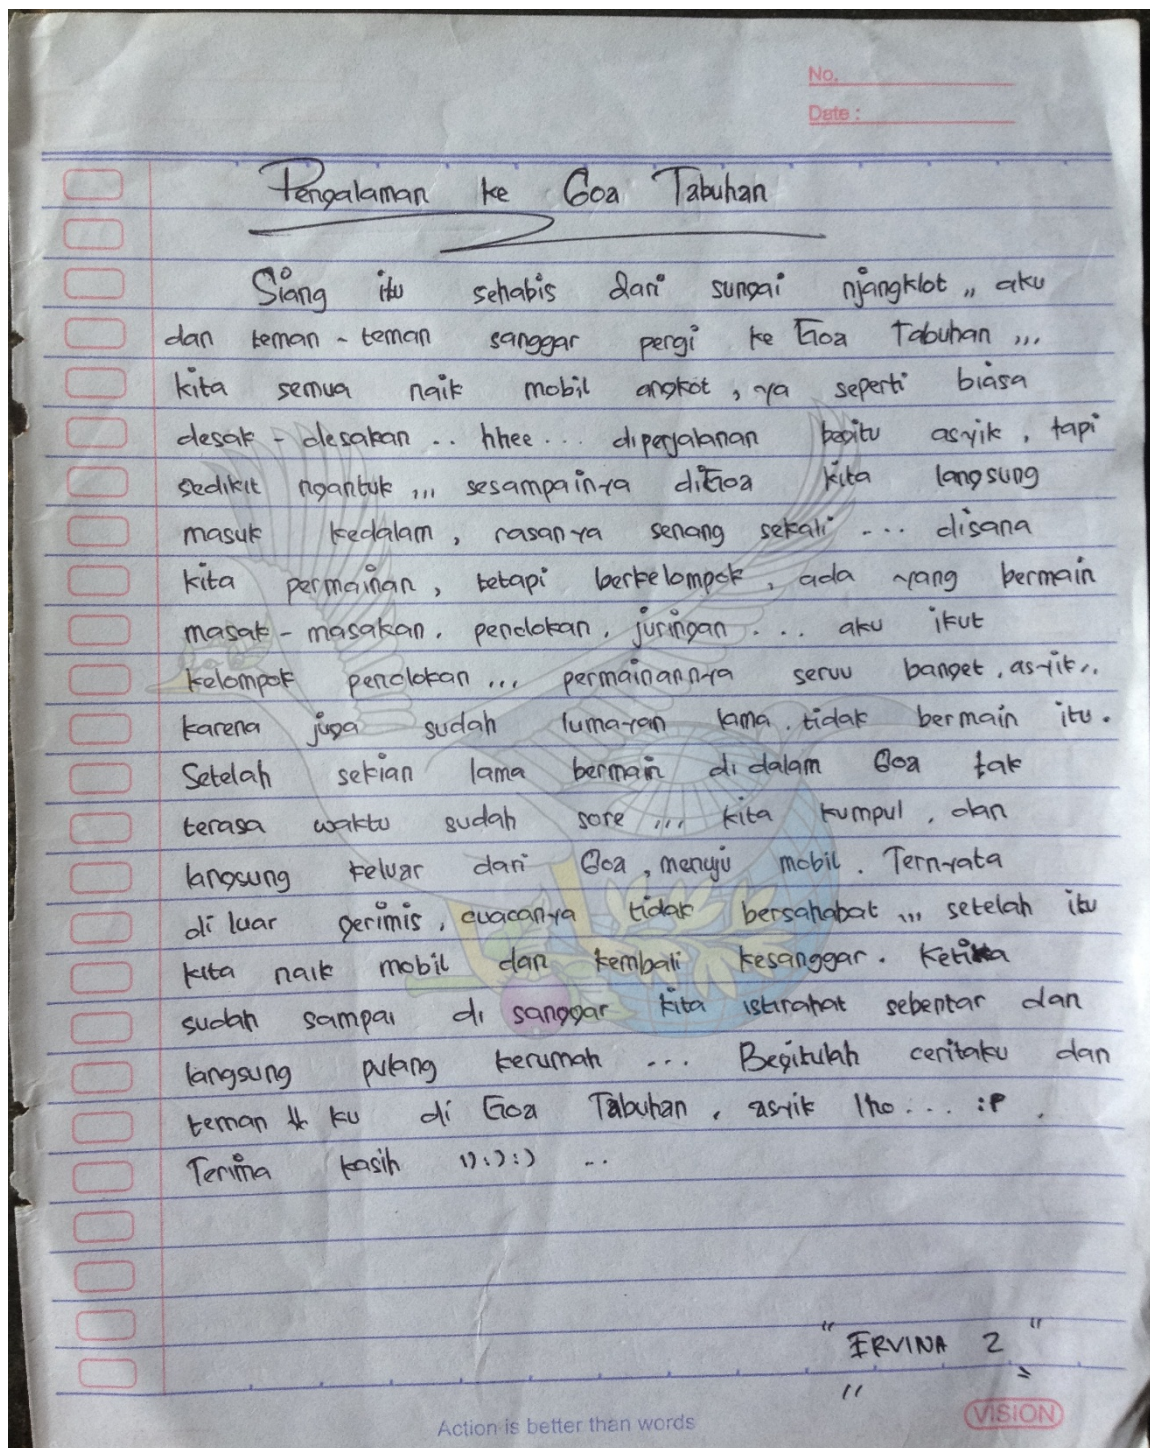 No.
Date :
Pengalaman ke Goa Tabuhan
Siang itu sehabis dari sungai njangklot ,, aku
dan teman - teman sanggar pergi ke Goa Tabuhan ,,,
kita semua naik mobil angkot , ya seperti biasa
desak - desakan .. hhee ... diperjalanan begitu asyik , tapi
sedikit ngantuk ,,, sesampainya diGoa kita langsung
masuk kedalam , rasanya senang sekali ... disana
kita permainan , tetapi berkelompok , ada yang bermain
masak - masakan , pendokan , juringan ... aku ikut
kelompok pendokan ... permainannya seruu banget , asyik ,,
karena juga sudah lumayan lama tidak bermain itu .
Setelah sekian lama bermain di dalam Goa tak
terasa waktu sudah sore ,,, kita kumpul , dan
langsung keluar dari Goa , menuju mobil . Ternyata
di luar gerimis , cuacanya tidak bersahabat ,,, setelah itu
kita naik mobil dan kembali kesanggar . Ketika
sudah sampai di sanggar kita istirahat sebentar dan
langsung pulang kerumah ... Begitulah ceritaku dan
teman ku di Goa Tabuhan , asyik lho ... :P .
Terima kasih :):):) ...
" ERVINA 2 "
Action is better than words
VISION